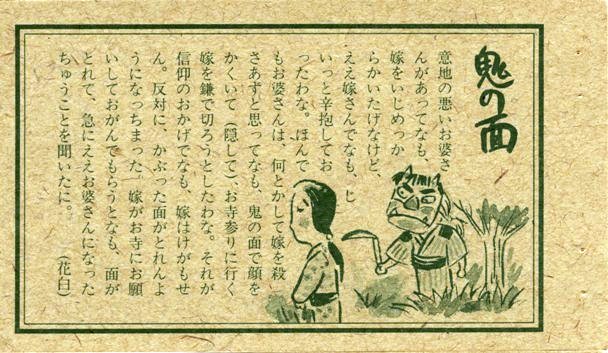 鬼の面
意地の悪いお婆さ
んがあってなも、
嫁をいじめっか
らかいたげなけど、
ええ嫁さんでなも、じ
いっと辛抱してお
ったわな。ほんで
もお婆さんは、何とかして嫁を殺
さあずと思ってなも、鬼の面で顔を
かくいて(隠して)、お寺参りに行く
嫁を鎌で切ろうとしたわな。それが
信仰のおかげでなも、嫁はけがもせ
ん。反対に、かぶった面がとれんよ
うになっちまった。嫁がお寺にお願
いしておがんでもらうとなも、面が
とれて、急にええお婆さんになった
ちゅうことを聞いたに。
(花白)